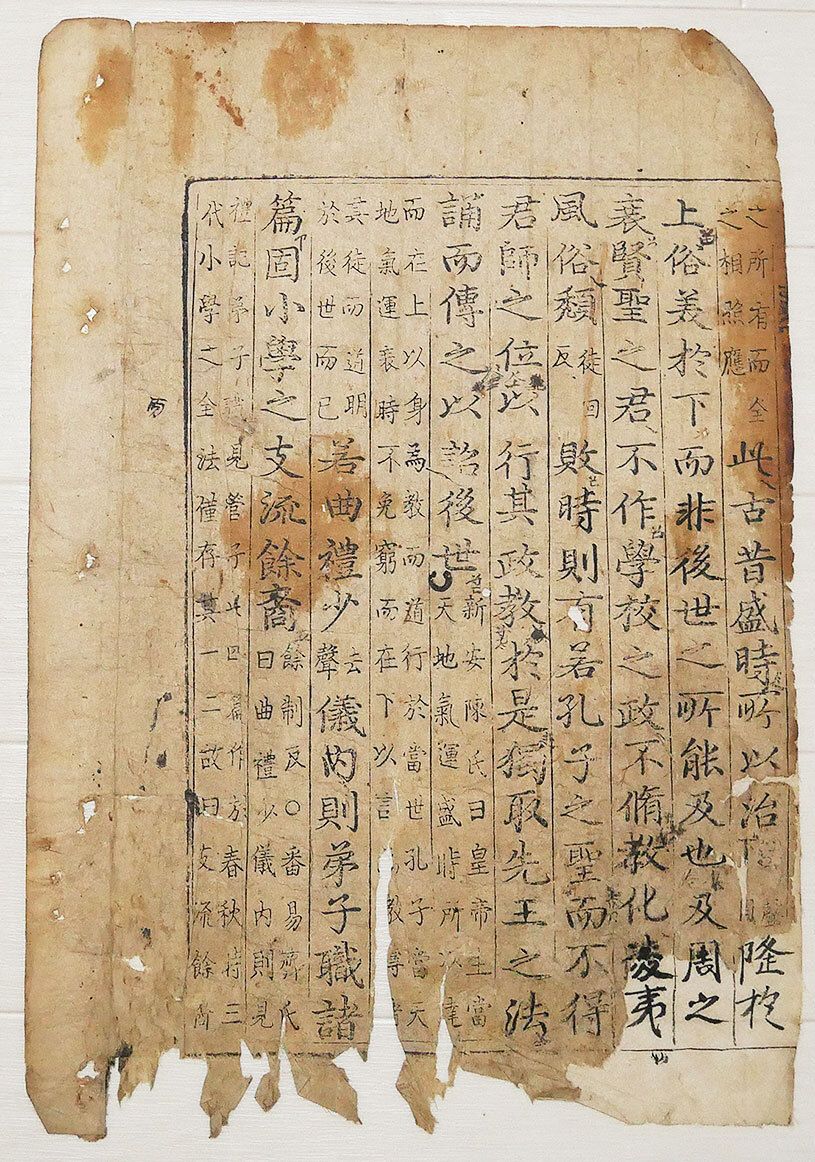 之所有而全
之相照應
此古昔盛時所以治隆於
上俗美於下而非後世之所能及也及周之
衰賢聖之君不作學校之政不脩教化陵夷
風俗頹徒回反敗時則有若孔子之聖而不得
君師之位以行其政教於是獨取先王之法
誦而傳之以詔後世
新安陳氏曰皇帝生當
天地氣運盛時所以達
而在上以身為教而道行於當世孔子當天
地氣運衰時不免窮而在下以言
其徒而道明
於後世而已
若曲禮少去聲儀內則弟子職諸
篇固小學之支流餘裔
餘制反○番易齊氏
曰曲禮少儀內則見
禮記弟子職見管子此四篇作於春秋時三
代小學之全法僅存其一二故曰支流餘裔